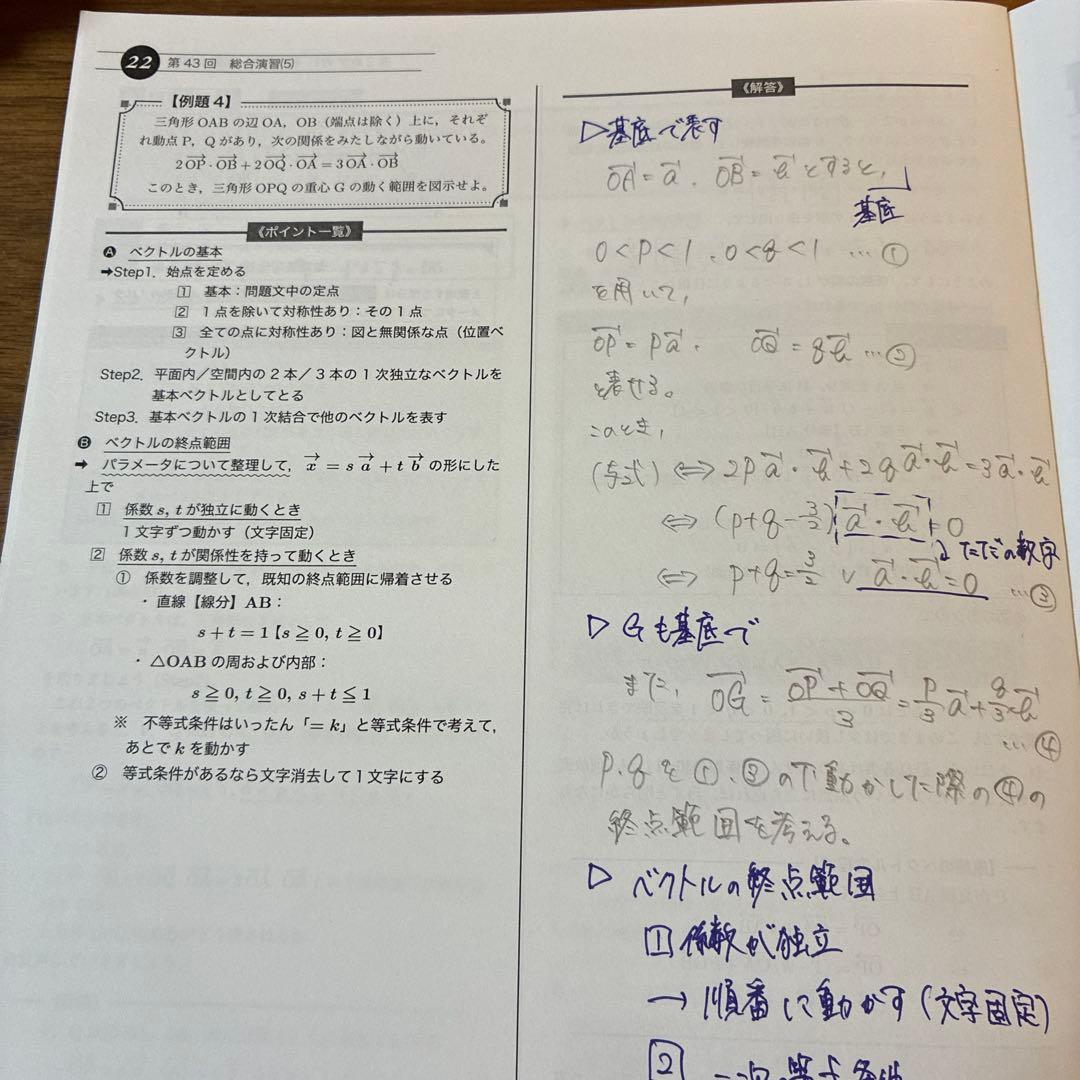 22 第43回 総合演習(5)
【例題4】
三角形OABの辺OA，OB（端点は除く）上に，それぞ
れ動点P，Qがあり，次の関係をみたしながら動いている。
2OP→・OB→+2OQ→・OA→=3OA→・OB→
このとき，三角形OPQの重心Gの動く範囲を図示せよ。
《ポイント一覧》
Ⓐ ベクトルの基本
➡Step1．始点を定める
1 基本：問題文中の定点
2 1点を除いて対称性あり：その1点
3 全ての点に対称性あり：図と無関係な点（位置ベ
クトル）
Step2．平面内／空間内の2本／3本の1次独立なベクトルを
基本ベクトルとしてとる
Step3．基本ベクトルの1次結合で他のベクトルを表す
Ⓑ ベクトルの終点範囲
➡ パラメータについて整理して，x→=sa→+tb→の形にした
上で
1 係数s, tが独立に動くとき
1文字ずつ動かす（文字固定）
2 係数s, tが関係性を持って動くとき
① 係数を調整して，既知の終点範囲に帰着させる
・直線【線分】AB：
s+t=1【s≧0, t≧0】
・△OABの周および内部：
s≧0, t≧0, s+t≦1
※ 不等式条件はいったん「=k」と等式条件で考えて，
あとでkを動かす
② 等式条件があるなら文字消去して1文字にする
《解答》
▷基底で表す
OA→=a→，OB→=b→とすると，
基底
0<p<1，0<q<1 …①
を用いて，
OP→=pa→， OQ→=qb→ …②
と表せる。
このとき，
(与式)⇔2pa→・b→+2qa→・b→=3a→・b→
⇔(p+q-3/2)a→・b→=0
ただの数字
⇔p+q=3/2 ∨ a→・b→=0 …③
▷Gも基底で
また，OG→=(OP→+OQ→)/3=p/3a→+q/3b→
…④
p，qを①，③の下動かした際の④の
終点範囲を考える。
▷ベクトルの終点範囲
1 係数が独立
→順番に動かす(文字固定)
2